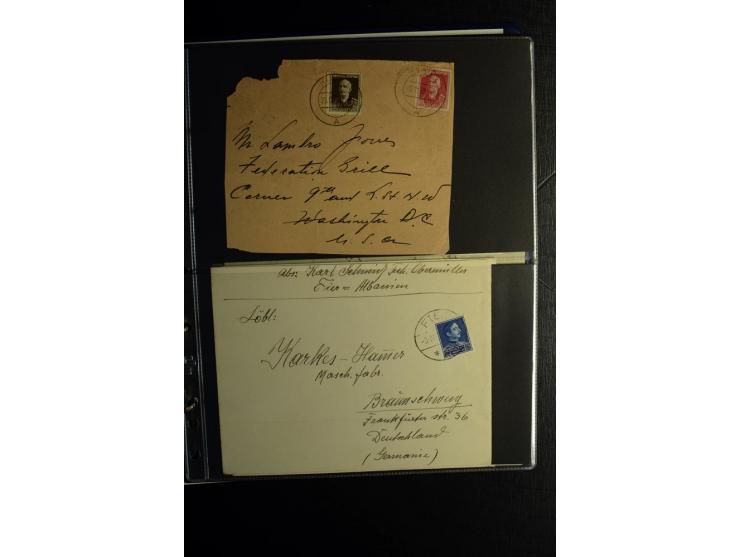 Mr Lambro Jones
Federation Grill
Corner 9th and L. St N.W
Washington D.C
U. S. A
A
Abs: Karl
Fier = Albanien
Löbl:
FIE
Karkes-Hamer
Masch. fabr.
Braunschweig
Frankfurter str. 36
Deutschland
(Germanie)